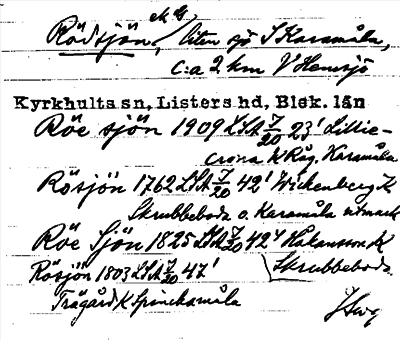 Rödsjön, liten sjö S Karamåla,
c:a 2 km V Hemsjö
Kyrkhults sn, Listers hd, Blek. län
Röe sjön 1909 LSA 7/20 23' Lillie-
crona K Råg. Karamåla
Rösjön 1762 LSA 7/20 42' Wickenberg K
Skrubbeboda o. Karamåla utmark
Röe Sjön 1825 LSA 7/20 42 Håkansson K
Skrubbeboda
Rösjön 1803 LSA 7/20 47'
Trägård K Spinckamåla